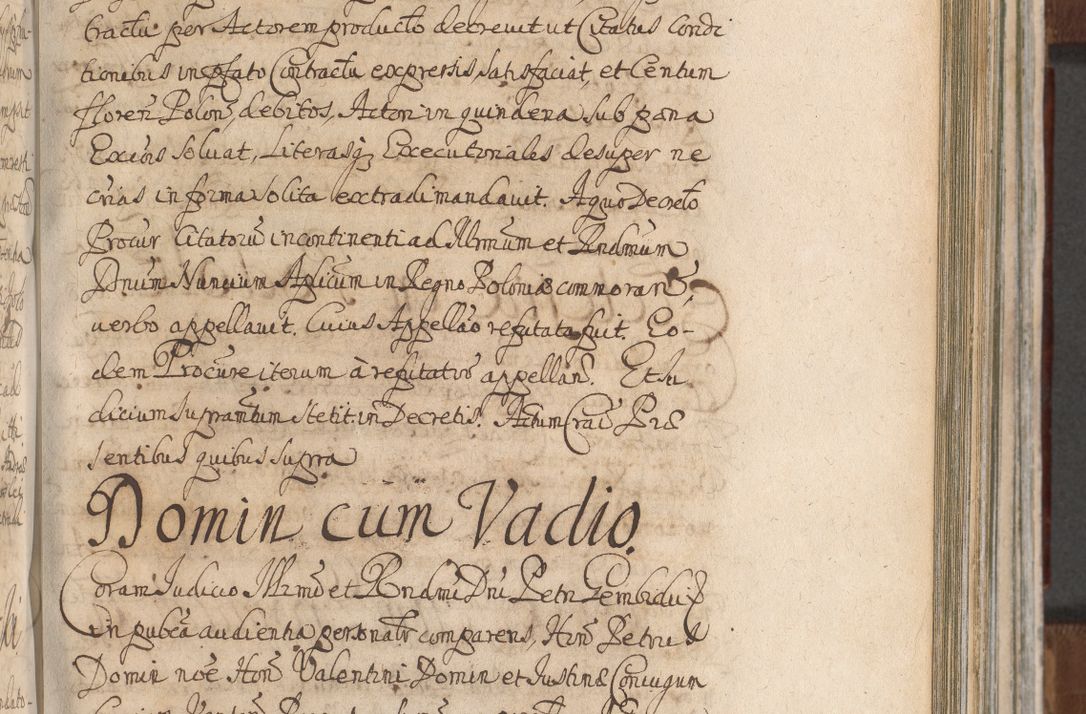 tractu per Actorem producto decrevit ut Citatus condi
tionibus in pfato Contractu expressis, satisfaciat, et Centum
floren Polon, debitos, Actori in quindena sub pœna
Excōis solvat, Literasq Executoriales desuper ne
crias in forma solita extradi mandavit. A quo Decreto
Procur Citatorū incontinenti ad Illrmum et Rndmum
Dnum Nuncium Aplicum in Regno Poloniæ commoran,
verbo appellavit. Cuius Appellāo refutata fuit. Eo-
dem Procure iterum à refutatoīs appellan. Et Iu
dicium supramtum stetit in Decretis. Actum Crac Præ
sentibus quibus supra
Domin cum Vadio.
Coram Iudicio Illrmi et Rndmi Dni Petri Gembicki &
in publca audientia personatr comparens, Hons Petrus
Domin noē Hons Valentini Domin et Iustinæ Coniugum